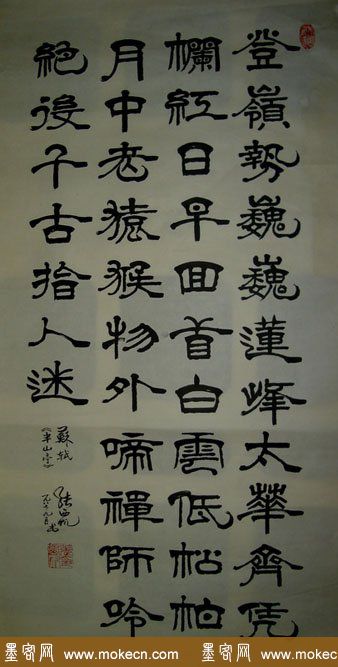 登嶺勢巍巍蓮峰太華齊凭
欄紅日早回首白雲低松柏
月中老猿猴物外啼禪師吟
絶後千古指人迷
蘇軾
《半山亭》
墨客网 www.mokecn.com 墨客网 www.mokecn.com